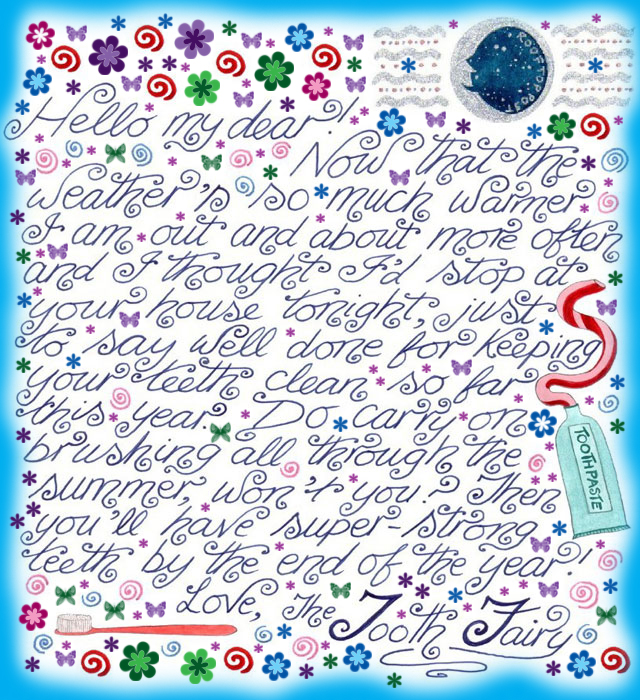 ROOFTOP POST
Hello my dear!
Now that the
weather's so much warmer
I am out and about more often
and I thought I'd stop at
your house tonight, just
to say well done for keeping
your teeth clean so far
this year. Do carry on
brushing all through the
summer, won't you? Then
you'll have super-strong
teeth by the end of the year!
Love, The Tooth Fairy
TOOTHPASTE